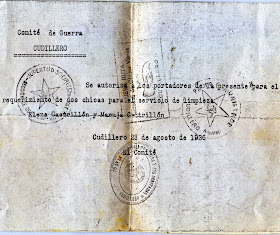 Comité de Guerra
CUDILLERO
================
Se autoriza a los portadores de la presente para el
requerimiento de dos chicas para el servicio de limpieza
Elena Castrillón y Maruja Castrillón
Cudillero 23 de agosto de 1936
El Comité